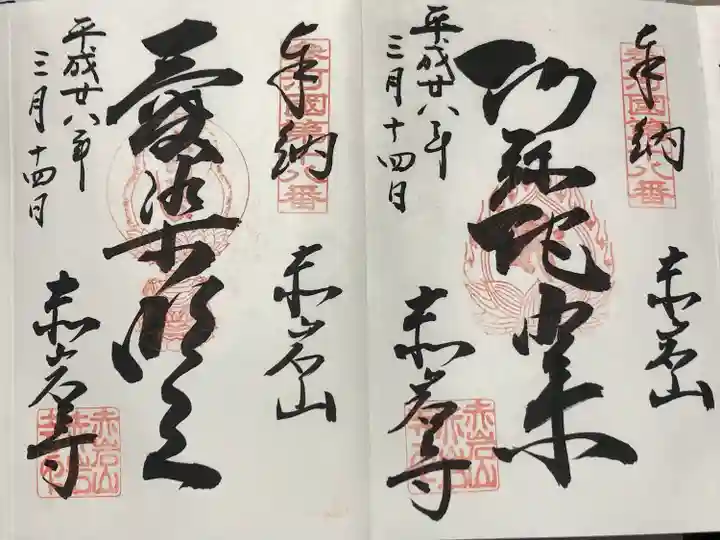 奉納
赤岩山
参河國第八番
阿弥陀如来
平成廿八年
三月十四日
赤岩寺
赤岩山
奉納
赤岩山
参河國第八番
愛染明王
平成廿八年
三月十四日
赤岩寺
赤岩山